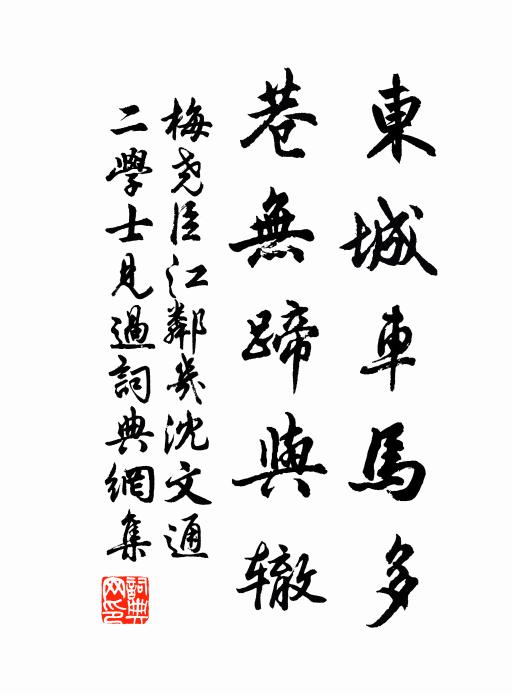 東城車馬多
巷無蹄與辙
梅尧臣江鄰幾沈文通
二學士見過詞典網集
詞典网印